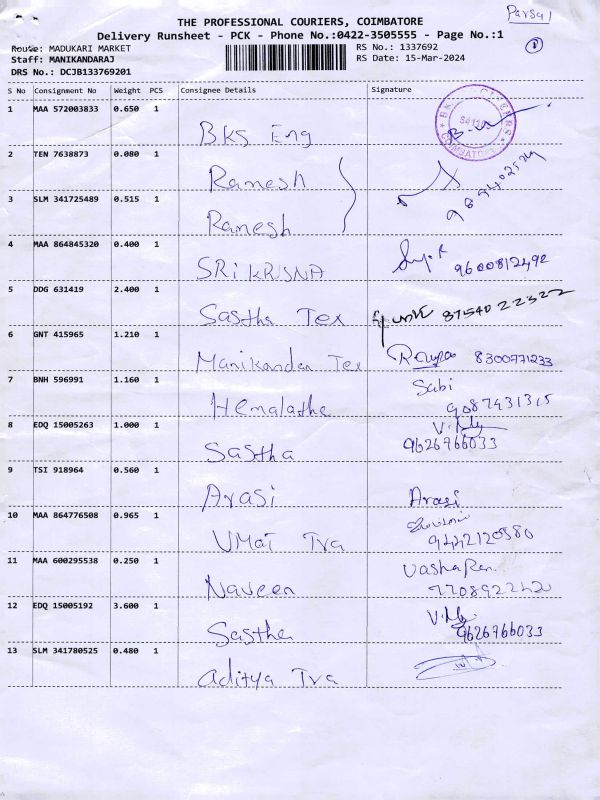 Parsal
THE PROFESSIONAL COURIERS, COIMBATORE
1
Delivery Runsheet - PCK - Phone No.:0422-3505555 - Page No.:1
Route: MADUKARI MARKET RS No.: 1337692
Staff: MANIKANDARAJ RS Date: 15-Mar-2024
DRS No.: DCJB133769201
S No Consignment No Weight PCS Consignee Details Signature
1 MAA 572003833 0.650 1 BKS Eng
COIMBATORE
2 TEN 7638873 0.080 1 Ramesh
3 SLM 341725489 0.515 1 Ramesh
4 MAA 864845320 0.400 1 SRI KRSNA 9600812492
5 DDG 631419 2.400 1 Sastha Tex 87540 22322
6 GNT 415965 1.210 1 Manikandan Tex Roupa 8300771233
7 BNH 596991 1.160 1 Hemalatha Sabi 9087431315
8 EDQ 15005263 1.000 1 Sastha 9626966033
9 TSI 918964 0.560 1 Arasi Arasi
10 MAA 864776508 0.965 1 UMAI Tra 9442120580
11 MAA 600295538 0.250 1 Naveen 7708922420
12 EDQ 15005192 3.600 1 Sastha 9626966033
13 SLM 341780525 0.480 1 aditya Tra